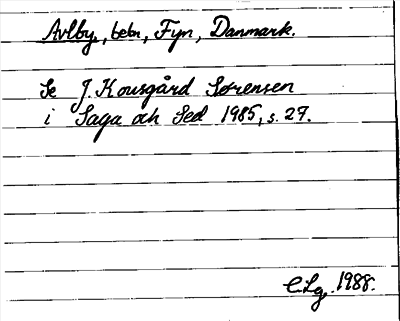 Avlby, bebn, Fyn, Danmark.
Se J. Kousgård Sørensen
i Saga och Sed 1985, s. 27.
C.Lg. 1988.